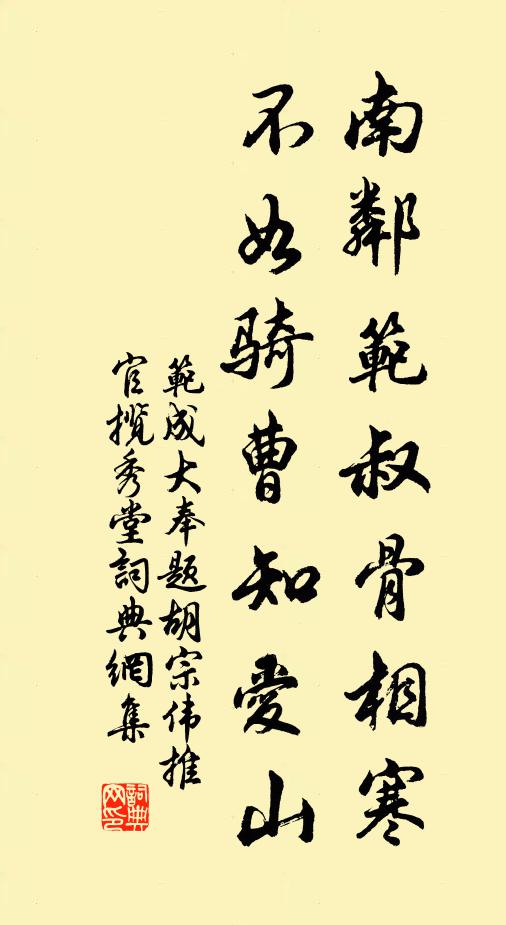 南鄰範叔骨相寒
不如騎曹知愛山
範成大奉題胡宗伟推
官攬秀堂詞典網集
詞典
网印